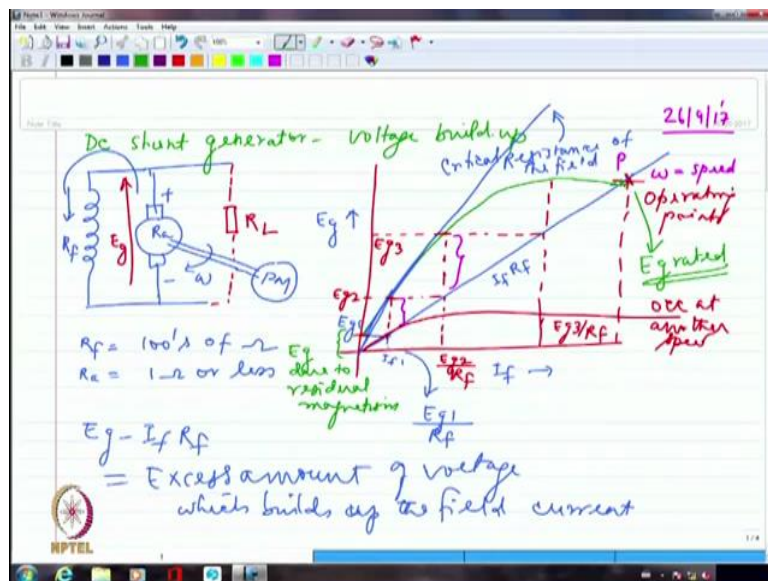 Note1 - Windows Journal
File Edit View Insert Actions Tools Help
Note Title
26/9/17
Dc shunt generator - voltage build-up
Critical Resistance of
the field
P
ω = speed
Operating
point
Eg rated
occ at
another
speed
Eg ↑
Eg3
Eg2
Eg1
If Rf
If1
Eg2/Rf
Eg3/Rf
If →
Eg1/Rf
Eg
due to
residual
magnetism
Rf
Eg
+
Ra
-
ω
PM
RL
Rf = 100's of Ω
Ra = 1Ω or less
Eg - If Rf
= Excess amount of voltage
which builds up the field current
NPTEL